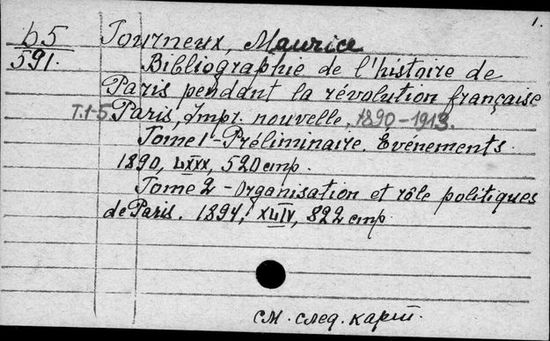 1.
b5
591.
Tourneux, Maurice
Bibliographie de l'histoire de
Paris pendant la révolution française
T.1-5 Paris, Impr. nouvelle, 1890-1913.
Tome 1 - Préliminaire. Evénements.
1890, 520 стр.
Tome 2 - Organisation et rôle politiques
de Paris. 1894, 822 стр.
см. след. карт.